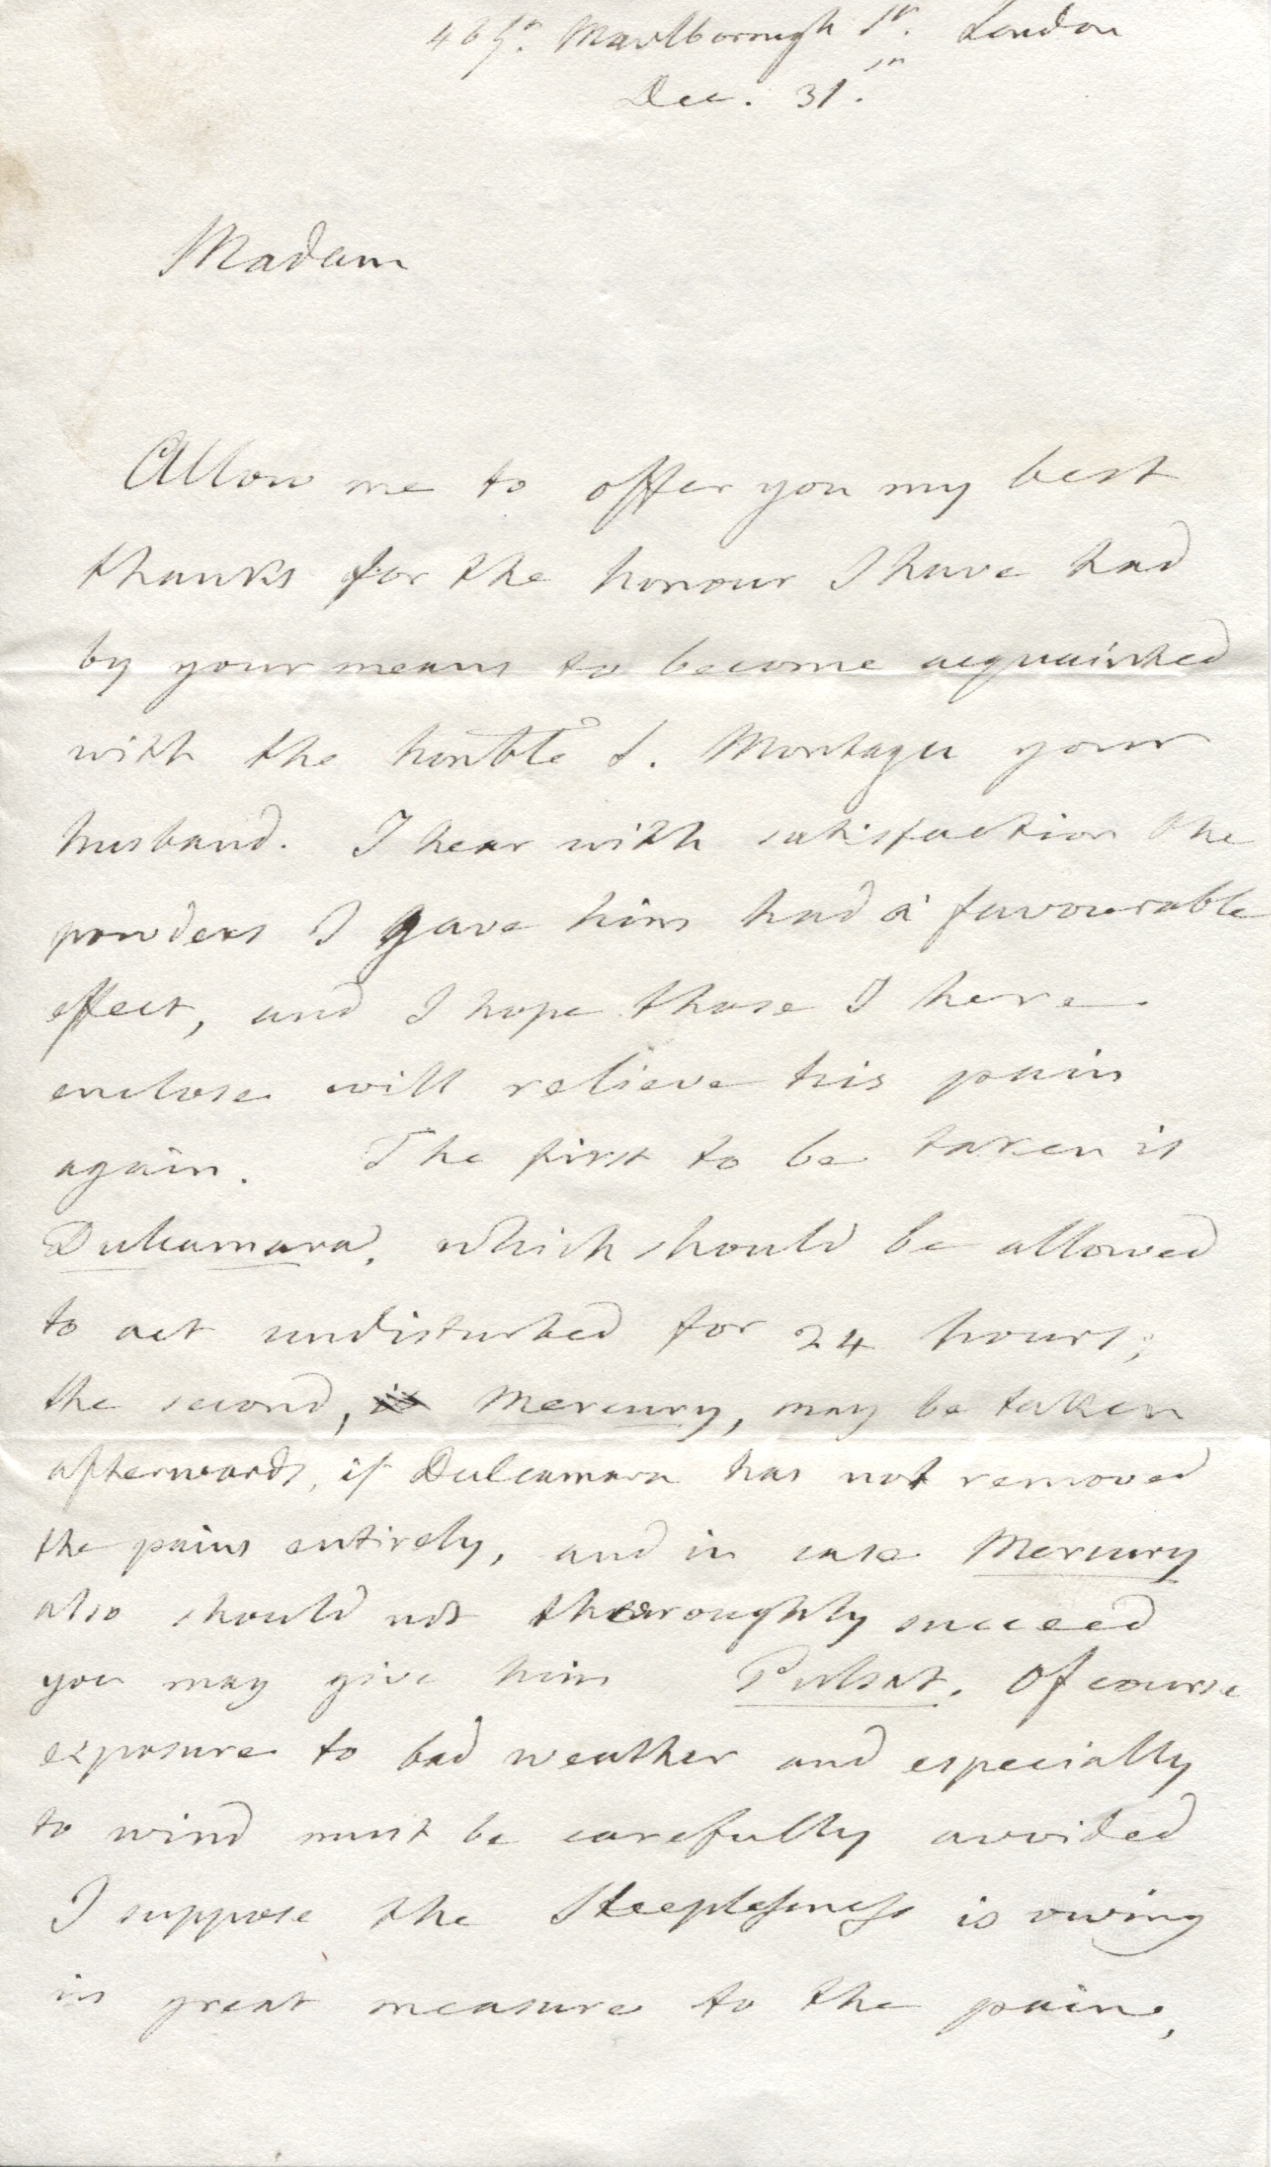 46 Gt. Marlborough St. London
Dec. 31.st
Madam
Allow me to offer you my best
thanks for the honour I have had
by your means to become acquainted
with the honble S. Montagu your
husband. I hear with satisfaction the
powders I gave him had a favourable
effect, and I hope those I here
enclose will relieve his pain
again. The first to be taken is
Dulcamara, which should be allowed
to act undisturbed for 24 hours;
the second, is Mercury, may be taken
afterwards, if Dulcamara has not removed
the pains entirely, and in case Mercury
also should not thoroughly succeed
you may give him Pulsat. Of course
exposure to bad weather and especially
to wind must be carefully avoided
I suppose the Sleeplessness is owing
in great measure to the pain,